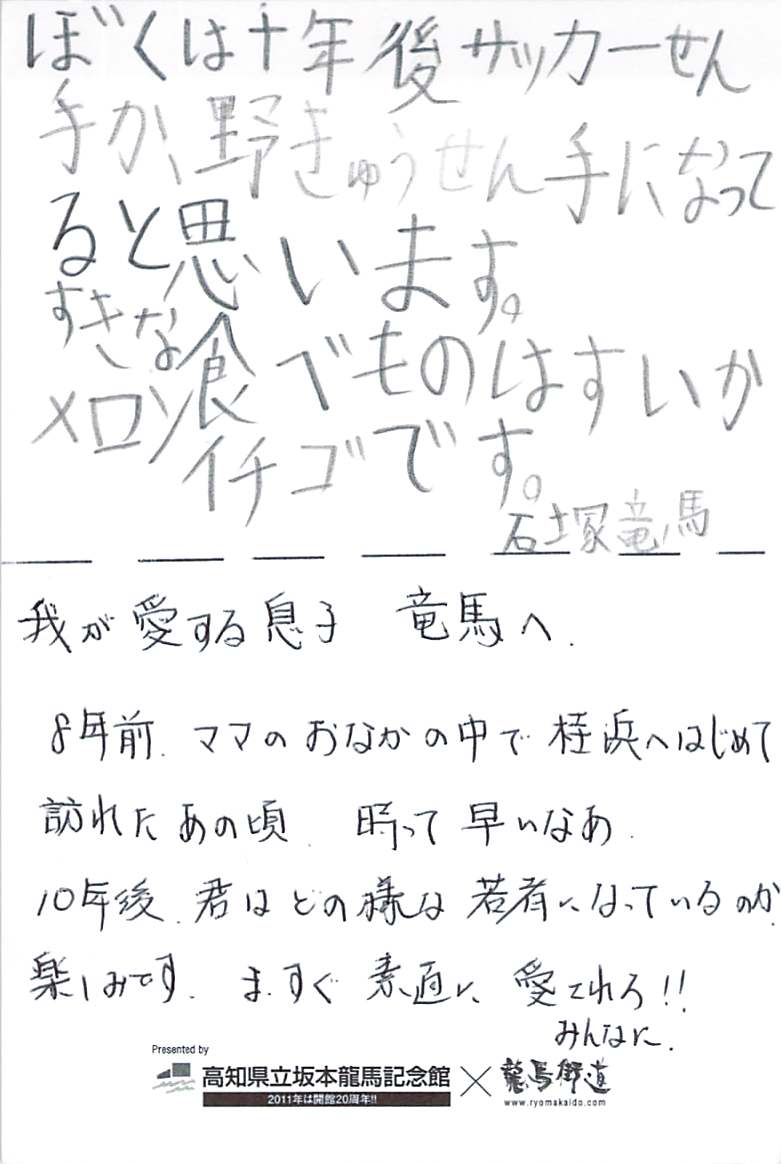 ぼくは十年後サッカーせん
手か、野きゅうせん手になって
ると思います。
すきな食べものはすいか
メロンイチゴです。
石塚竜馬
我が愛する息子 竜馬へ.
8年前. ママのおなかの中で 桂浜へはじめて
訪れたあの頃. 時って早いなあ.
10年後. 君はどの様な若者になっているのか.
楽しみです. ますぐ素直に 愛されろ!!
みんなに.
Presented by
高知県立坂本龍馬記念館×龍馬街道
2011年は開館20周年!!
www.ryomakaido.com